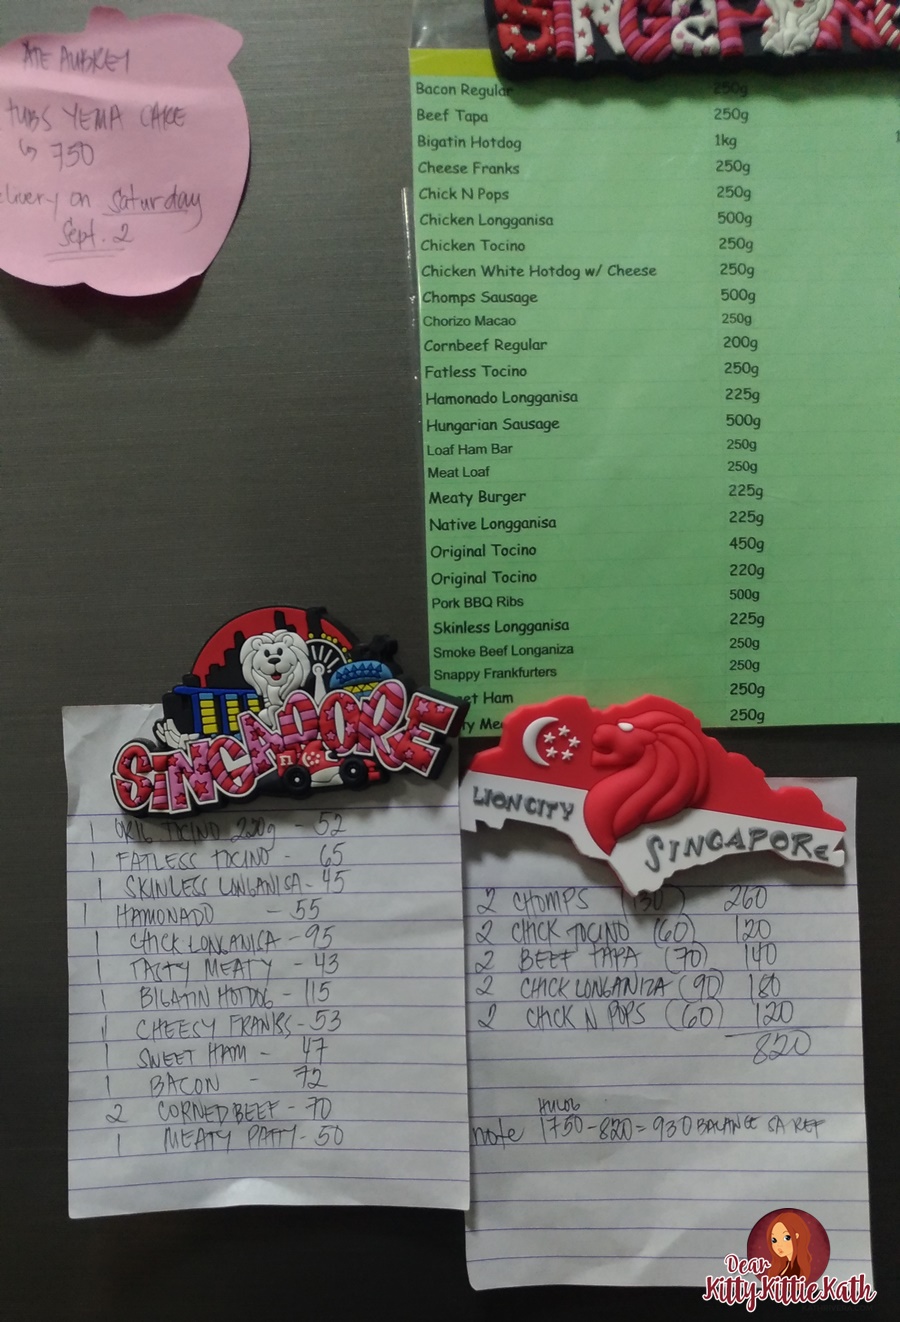 ATE AUBREY
TUBS YEMA CAKE
↳ 750
elivery on Saturday
Sept. 2
SINGAPORE
Bacon Regular 250g
Beef Tapa 250g
Bigatin Hotdog 1kg 1
Cheese Franks 250g
Chick N Pops 250g
Chicken Longganisa 500g
Chicken Tocino 250g
Chicken White Hotdog w/ Cheese 250g
Chomps Sausage 500g
Chorizo Macao 250g
Cornbeef Regular 200g
Fatless Tocino 250g
Hamonado Longganisa 225g
Hungarian Sausage 500g
Loaf Ham Bar 250g
Meat Loaf 250g
Meaty Burger 225g
Native Longganisa 225g
Original Tocino 450g
Original Tocino 220g
Pork BBQ Ribs 500g
Skinless Longganisa 225g
Smoke Beef Longaniza 250g
Snappy Frankfurters 250g
et Ham 250g
ty Mea 250g
SINGAPORE
F1
1 ORIG TOCINO 220g - 52
1 FATLESS TOCINO - 65
1 SKINLESS LONGANISA - 45
1 HAMONADO - 55
1 CHICK LONGANISA - 95
1 TASTY MEATY - 43
1 BIGATIN HOTDOG - 115
1 CHEESY FRANKS - 53
1 SWEET HAM - 47
1 BACON - 72
2 CORNED BEEF - 70
1 MEATY PATTY - 50
LION CITY
SINGAPORE
2 CHOMPS (130) 260
2 CHICK TOCINO (60) 120
2 BEEF TAPA (70) 140
2 CHICK LONGANIZA (90) 180
2 CHICK N POPS (60) 120
820
HULOG
note 1750 - 820 = 930 BALANCE SA REF
Dear
KittyKittieKath